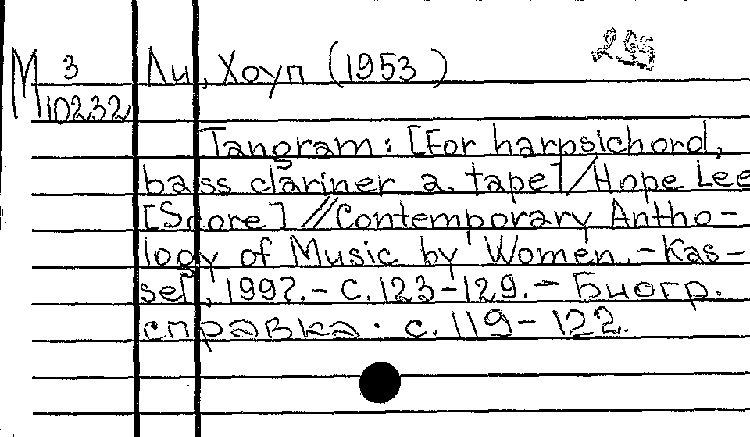 М 3
10232
Ли, Хоуп (1953 )
295
Tangram: [For harpsichord,
bass clariner a. tape] / Hope Lee
[Score] // Contemporary Antho-
logy of Music by Women. - Kas-
sel, 1997. - С. 123-129. - Биогр.
справка. с. 119-122.